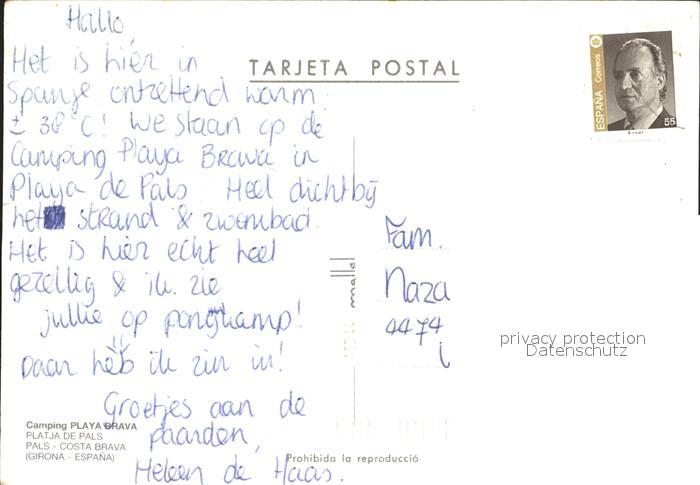 Hallo,
Het is hier in
Spanje ontzettend warm
± 38°C! We staan op de
Camping Playa Brava in
Playa de Pals Heel dichtbij
het strand & zwembad.
Het is hier echt heel
gezellig & ik zie
jullie op ponykamp!
Daar heb ik zin in!
Groetjes aan de
paarden,
Heleen de Haas.
TARJETA POSTAL
ESPAÑA Correos
55
Fam.
Naza
4474
privacy protection
Datenschutz
Camping PLAYA BRAVA
PLATJA DE PALS
PALS - COSTA BRAVA
(GIRONA - ESPAÑA)
Prohibida la reproducció